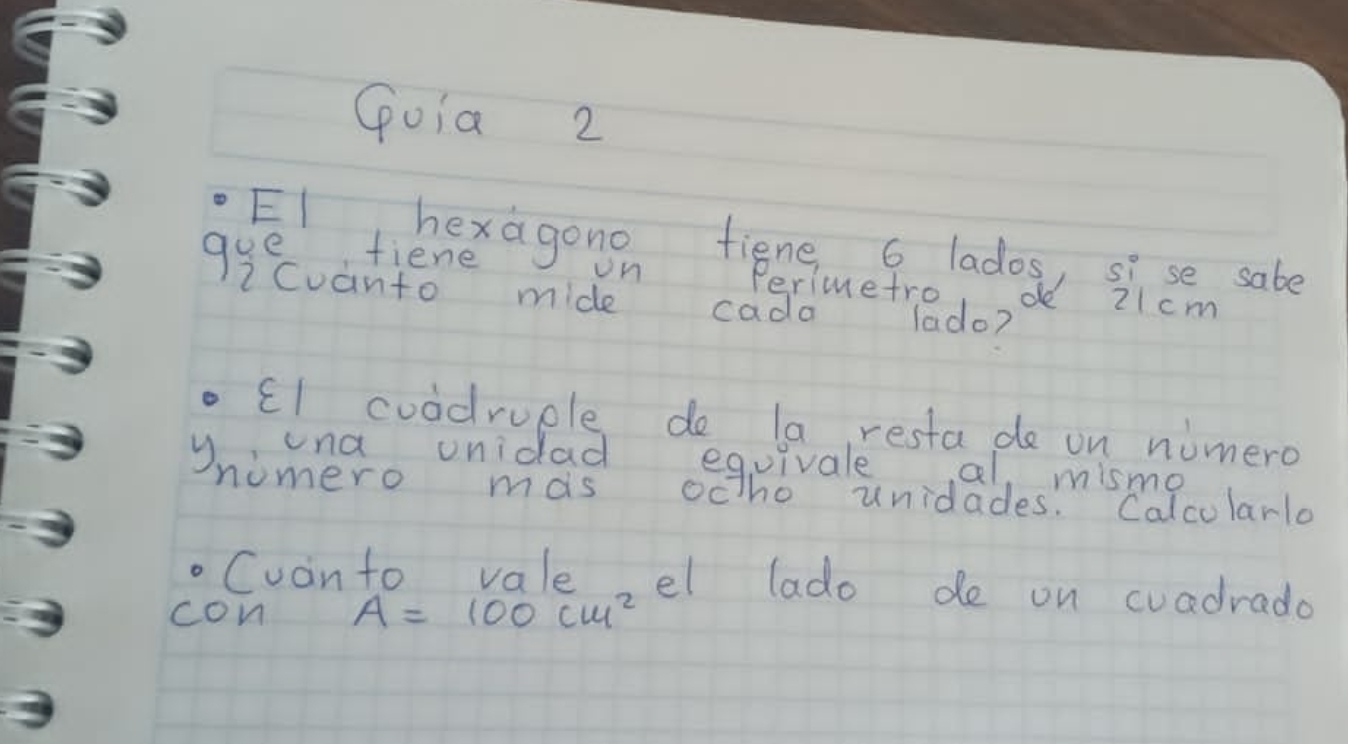 Guía 2
• El hexágono tiene 6 lados, si se sabe
que tiene un Perímetro de 21cm
¿Cuánto mide cada lado?
• El cuádruple de la resta de un número
y una unidad equivale al mismo
número más ocho unidades. Calcularlo
• Cuánto vale el lado de un cuadrado
con A = 100 cm²